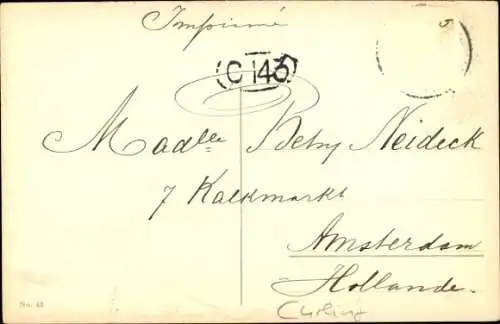 Imprimé
(C 143)
Madlle Betsy Neideck
7 Kalkmarkt
Amsterdam
Hollande.
No. 48